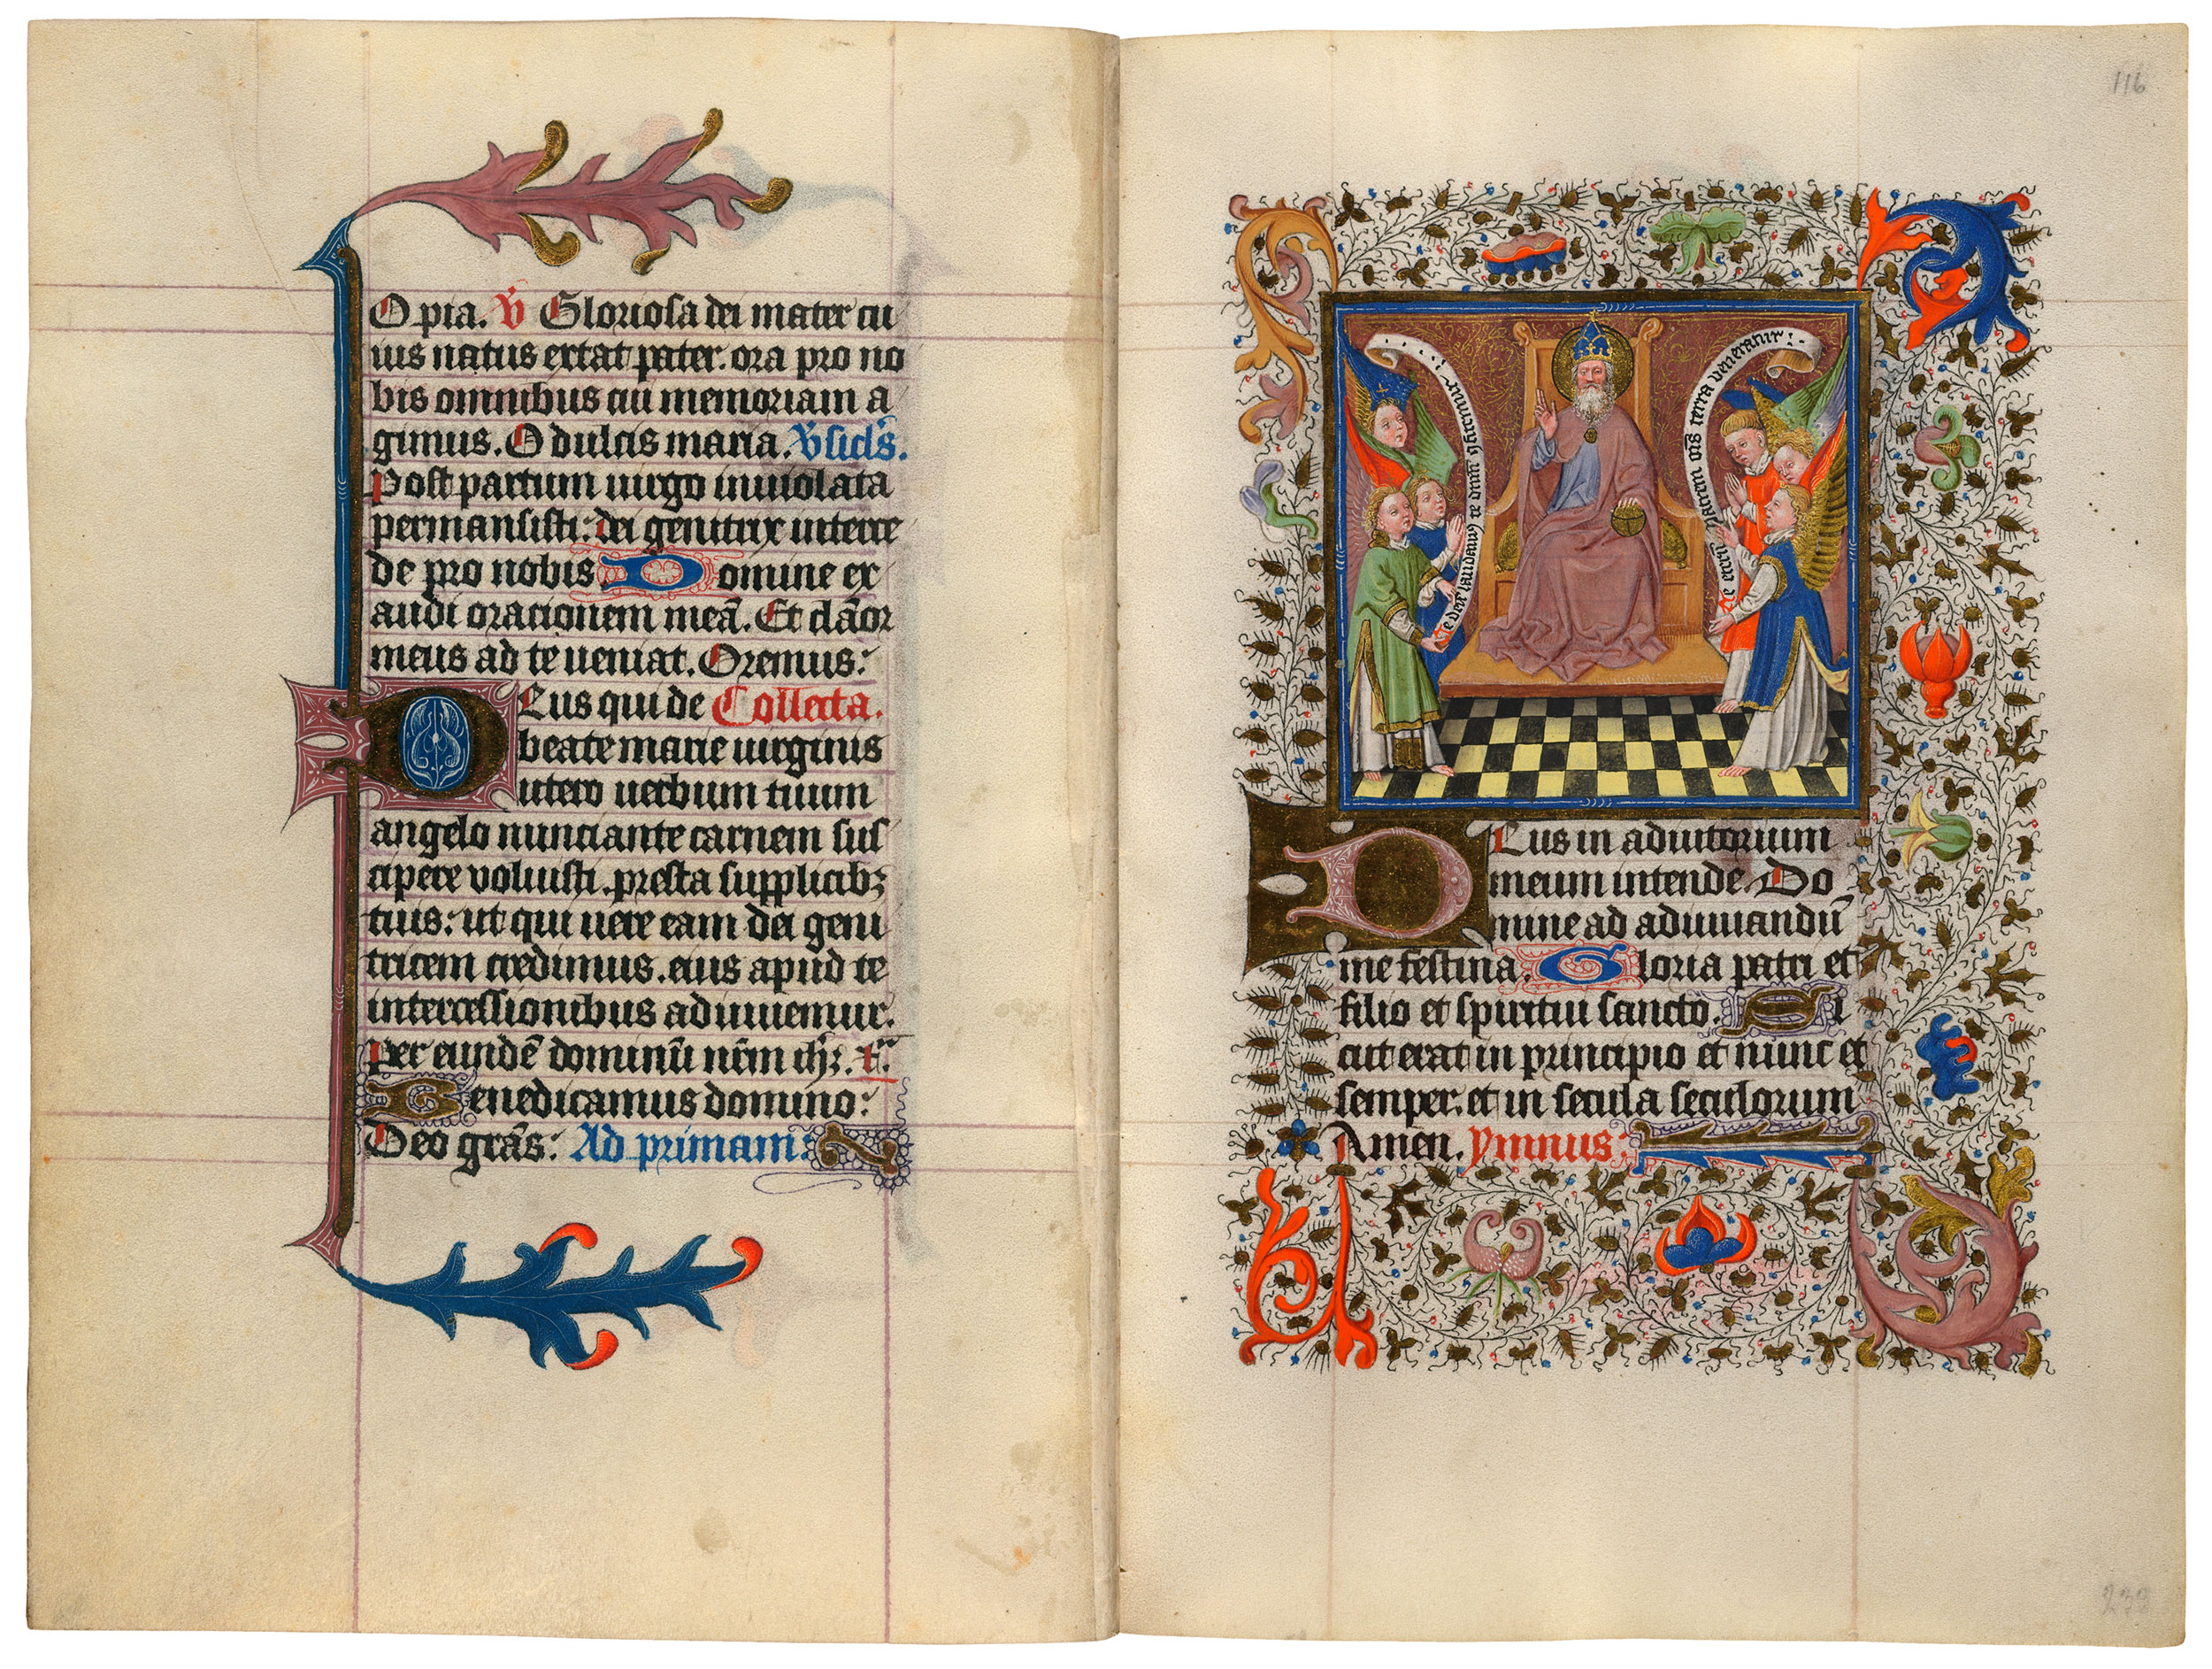 O pia. V̄ Gloriosa dei mater cu
ius natus extat pater. ora pro no
bis omnibus cui memoriam a
gimus. O dulcis maria. V̄sicl's.
Post partum uirgo inuiolata
permansisti: dei genitrix interce
de pro nobis Domine ex
audi orationem meā. Et clāor
meus ad te ueniat. Oremus:
Deus qui de Collecta.
beate marie uirginis
utero uerbum tuum
angelo nunciante carnem sus
cipere voluisti. presta supplicibꝫ
tuis: ut qui uere eam dei geni
tricem credimus. eius apud te
intercessionibus adiuuemur.
Per eundē dominū nr̄m
Benedicamus domino:
Deo grās: Ad primam:
116
Te deū laudamꝰ te dnm̄ ꝯfitemur
Te eternū Patrem om̄s terra veneratur:
Deus in adiutorium
meum intende. Do
mine ad adiuuandū
me festina. Gloria patri et
filio et spiritui sancto. Si
cut erat in principio et nunc et
semper. et in secula seculorum
Amen. ymnus: